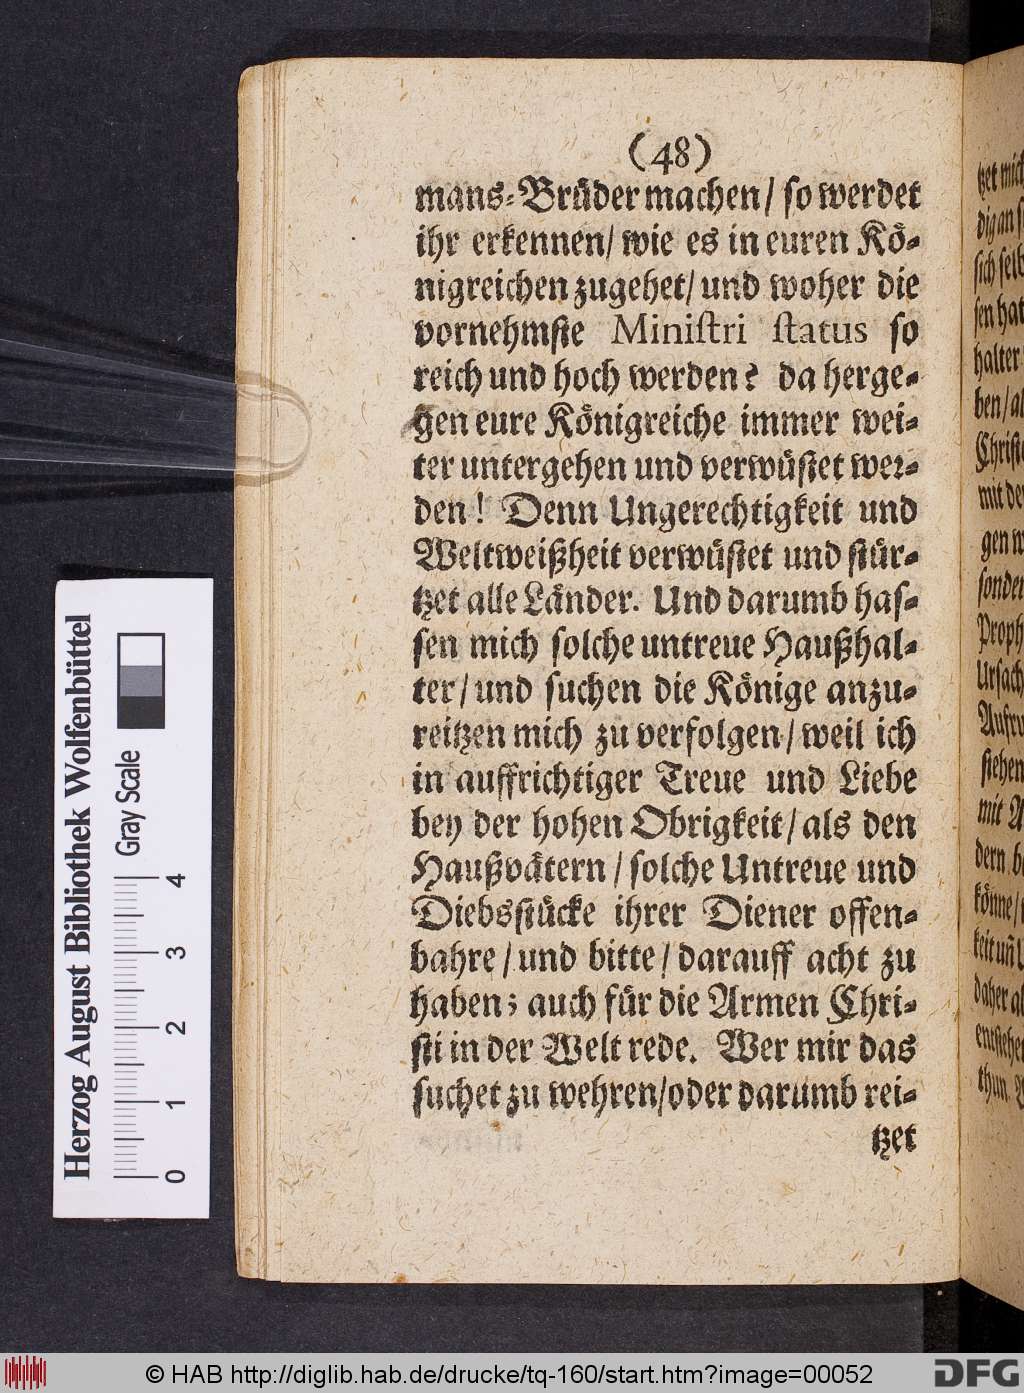 (48)
mans-Brüder machen/ so werdet
ihr erkennen/ wie es in euren Kö-
nigreichen zugehet/ und woher die
vornehmste Ministri status so
reich und hoch werden? da herge-
gen eure Königreiche immer wei-
ter untergehen und verwüstet wer-
den! Denn Ungerechtigkeit und
Weltweißheit verwüstet und stür-
tzet alle Länder. Und darumb has-
sen mich solche untreue Haußhal-
ter/ und suchen die Könige anzu-
reitzen mich zu verfolgen/ weil ich
in auffrichtiger Treue und Liebe
bey der hohen Obrigkeit/ als den
Haußvätern/ solche Untreue und
Diebsstücke ihrer Diener offen-
bahre/ und bitte/ darauff acht zu
haben; auch für die Armen Chri-
sti in der Welt rede. Wer mir das
suchet zu wehren/oder darumb rei-
tzet
tzet mich
dig an
sich selb
sen hat
halter
ben/
Christ
mit
gen
sonder
Proph
Ursach
Aufru
stehen
mit
dern
könne/
keit uñ
daher
entstehe
thun.
Herzog August Bibliothek Wolfenbüttel
Gray Scale
0 1 2 3 4
© HAB http://diglib.hab.de/drucke/tq-160/start.htm?image=00052
DFG